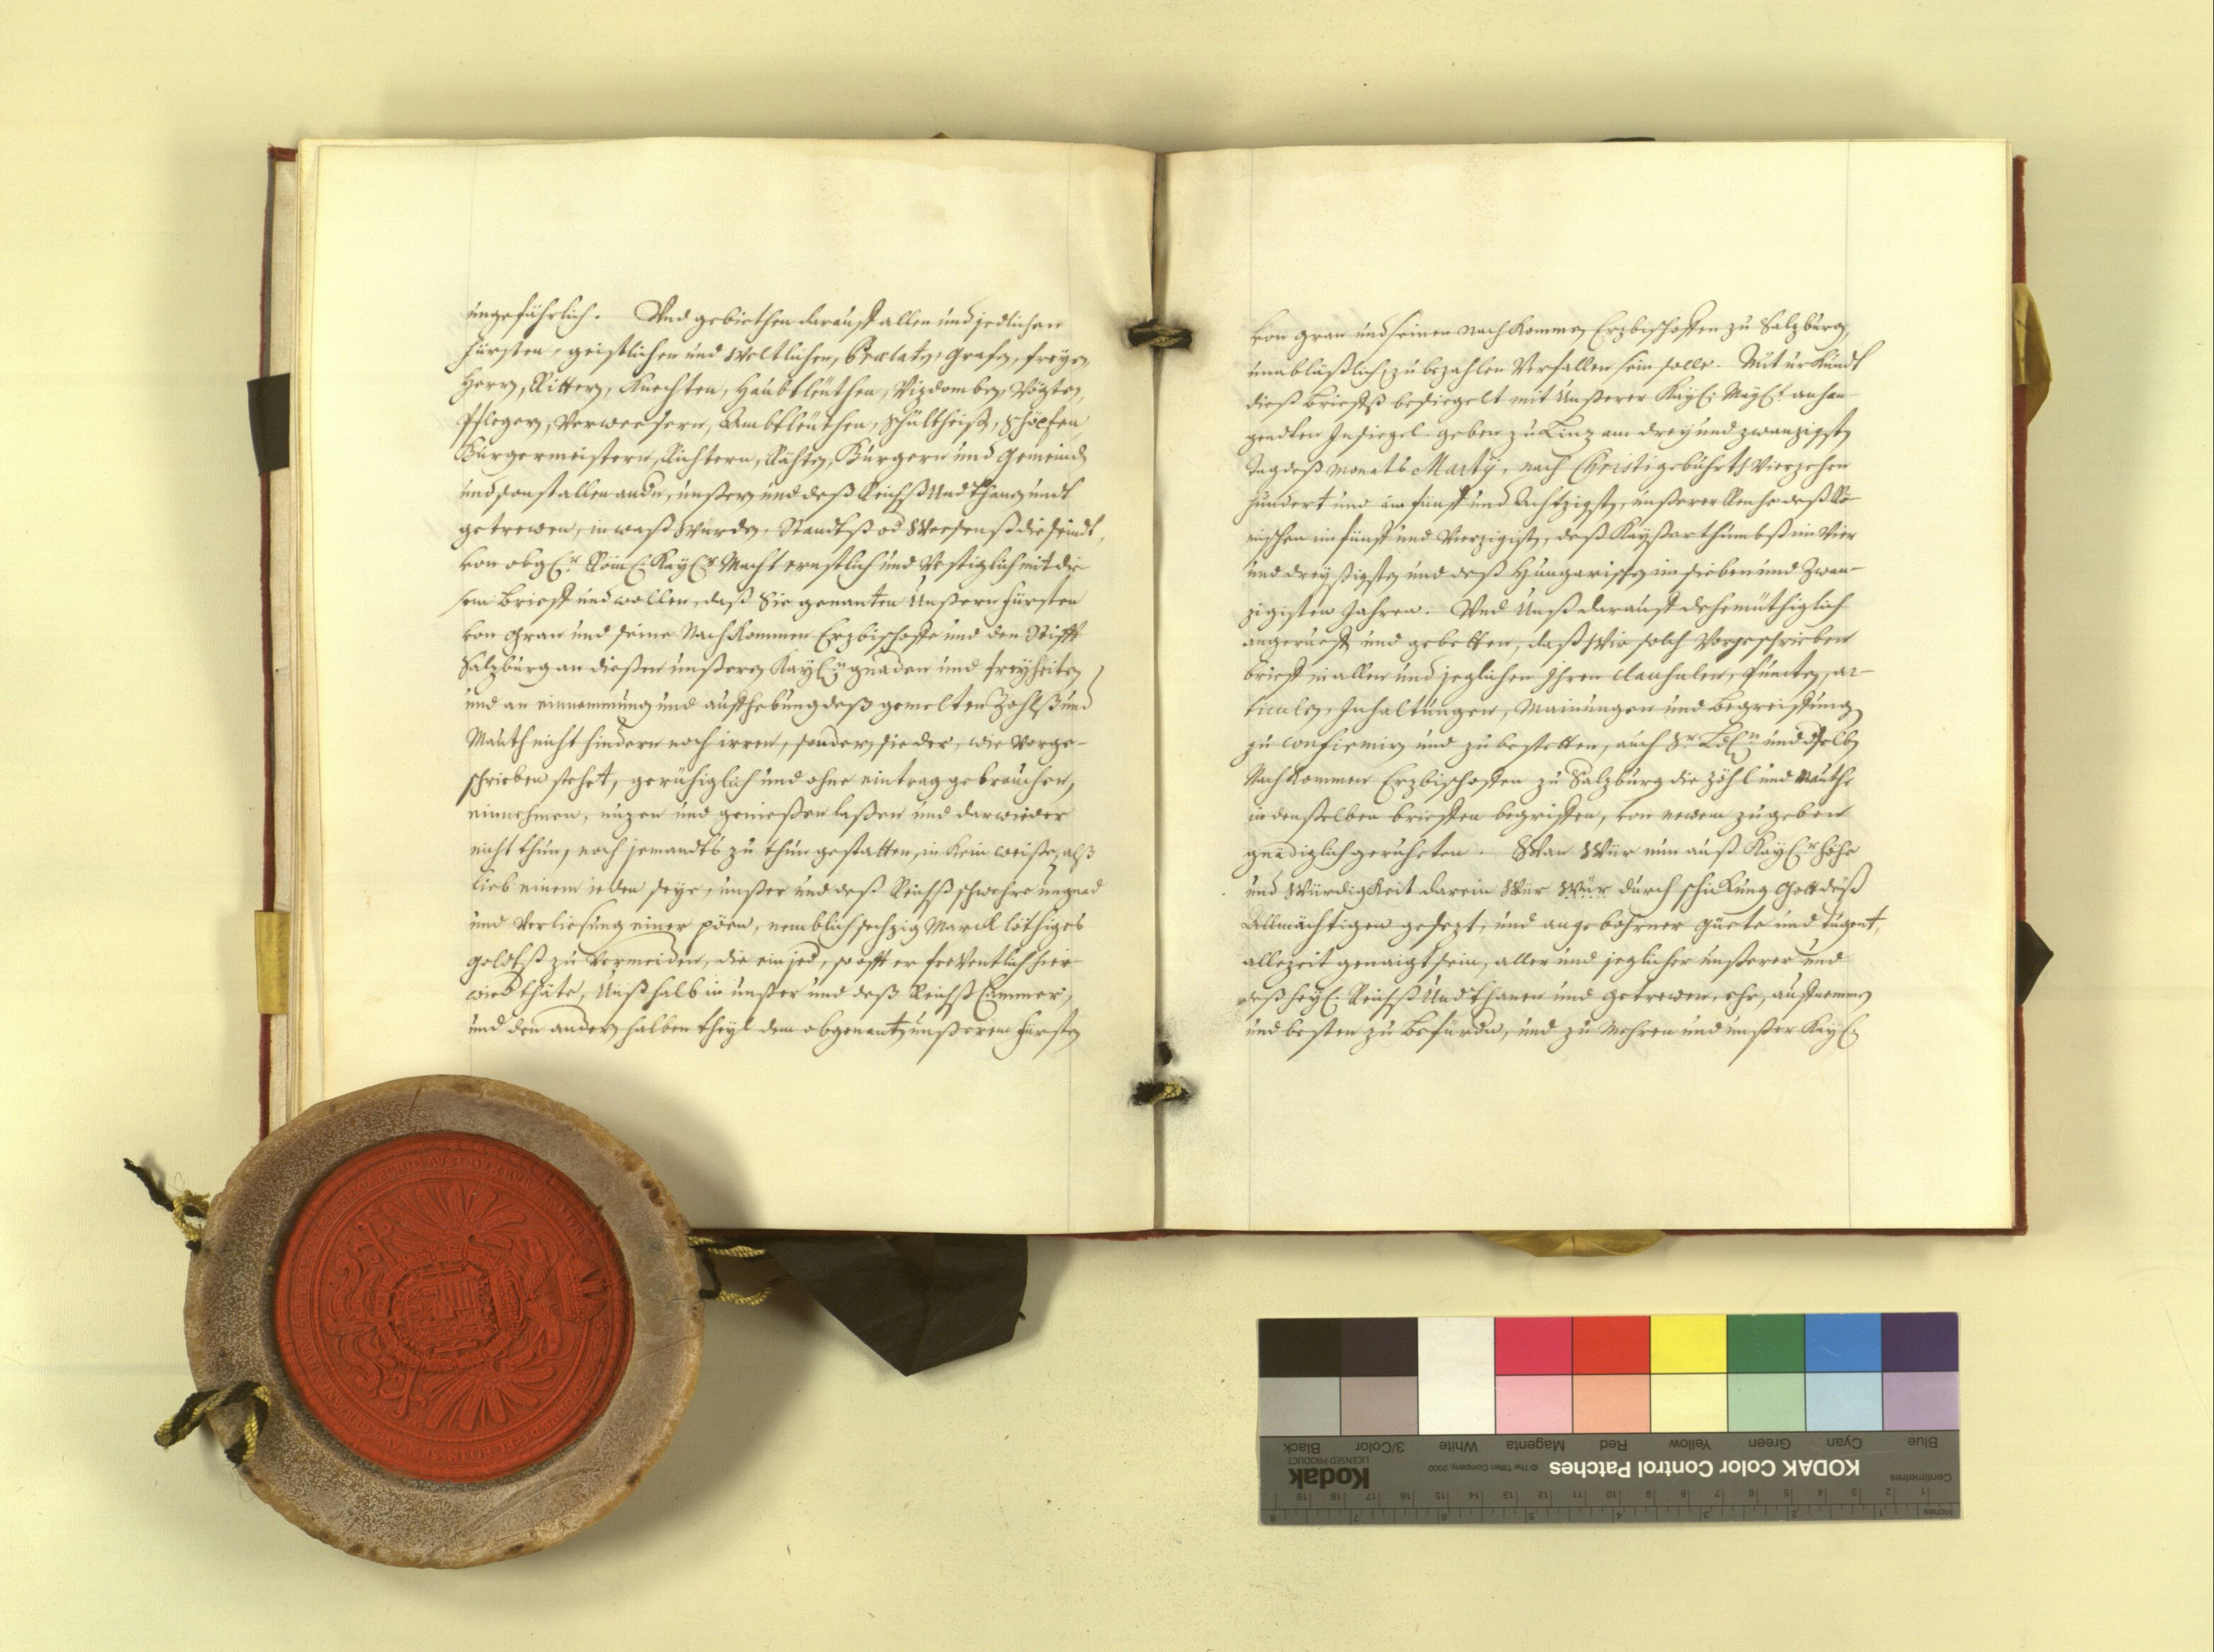 ungefährlich. Vnd gebiethen darauff allen und jedlichen
fürsten, geistlichen und Weltlichen, Prælaten, Grafen, freyen,
Herrn, Rittern, Knechten, Haubtleüthen, Vizdomben, Vögten,
Pflegern, Verweesern, Ambtleüthen, Schültheiß, Schöpfen,
Bürgermeistern, Richtern, Räthen, Bürgern und Gemeind
und sonst allen andn, unßern und deß Reichß Undthanen undt
getrewen, in waß Würden, Standtß od Weesenß die seindt,
von obg. Röm: Kay: Macht ernstlich und Vestiglich mit die-
sem brieff und wollen, daß Sie genanten Unßern fürsten
von Gran und seine Nachkommen Erzbischoffe und den Stifft
Salzburg an dießen unßern Kay:n gnaden und freyheiten,
und an einnemmung und auffhebung deß gemelten Zohlß und
Mauth nicht hindern noch irren, sondern sie der, wie Vorge-
schrieben stehet, gerühiglich und ohne eintrag gebrauchen,
einnehmen, nuzen und genießen laßen und darwieder
nicht thun, noch jemandts zu thun gestatten, in kein weiße, alß
lieb einem ieden seye, unßer und deß Reichß schwehre ungnad
und Verliesung einer pöen, nemblich sechzig Marck löthiges
goldtß zu Vermeiden, die ein jed, so offt er freVentlich hier-
wied thäte, Unß halb in unßer und deß Reichß Cammer,
und den andern halben theyl dem obgenanten unßerem fürsten
von Gran und seinen nachkommen Erzbischoffen zu Salzburg,
unabläßlich zu bezahlen Verfallen sein solle. Mit urkundt
dieß brieffß besiegelt mit Unßerer Kay: May: anhan-
gendten Insiegel. geben zu Linz am drey und zwanzigsten
Tag deß monats Martÿ, nach Christi gebührth Vierzehen
hundert und im fünff und Achtzigsten, unßerer Reiche deß Rö-
mischen im fünff und Vierzigisten, deß Kayßerthumbß im Vier
und dreyßigsten und deß Hungarischen im sieben und Zwan-
zigisten Jahren. Vnd Unß darauff dehemüthiglich
angerueff und gebetten, daß Wir solch Vorgeschrieben
brieff in allen und jeglichen Ihren Clausulen, Puncten, ar-
ticulen, Inhaltungen, Mainungen und begreiffung,
zu confirmirn und zu bestetten, auch Sr Lbdn und dselben
Nachkommen Erzbischoffen zu Salzburg die Zöhl und Mauthe
in denselben brieffen begriffen, von newem zu geben
gnädiglich geruheten. Wan Wür nun auß Kay:r höhe
und Würdigkeit darein Wür Wür durch schickung Gott deß
Allmächtigen gesezt, und angebohrner güete und tugent,
allezeit genaigt sein, aller und jeglicher unßerer und
deß hey: Reichß Undthanen und getrewen, ehr, auffnemmen
und besten zu befürdn, und zu Mehren und unßer Kay:
KODAK Color Control Patches
Kodak
LICENSED PRODUCT
© The Tiffen Company, 2000
Blue Cyan Green Yellow Red Magenta White 3/Color Black
Centimetres
Inches
1 2 3 4 5 6 7 8 9 10 11 12 13 14 15 16 17 18 19
1 2 3 4 5 6 7 8